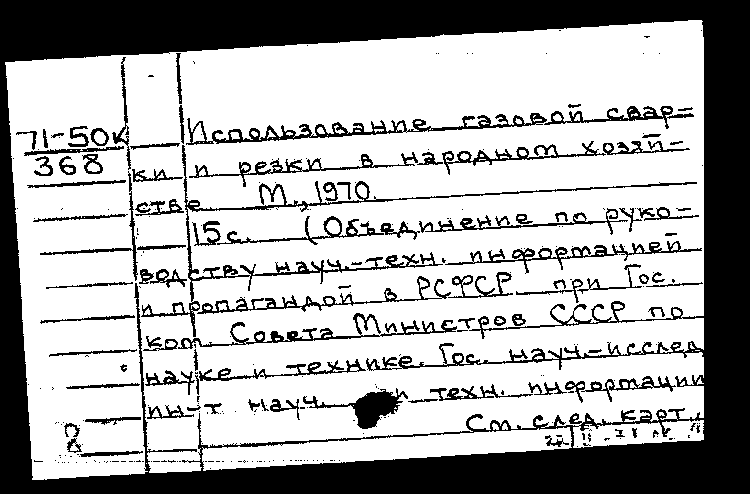 71-50к
368
Использование газовой свар-
ки и резки в народном хозяй-
стве. М., 1970.
15с. (Объединение по руко-
водству науч.-техн. информацией
и пропагандой в РСФСР при Гос.
ком. Совета Министров СССР по
науке и технике. Гос. науч.-исслед.
ин-т науч. и техн. информации
См. след. карт.
8